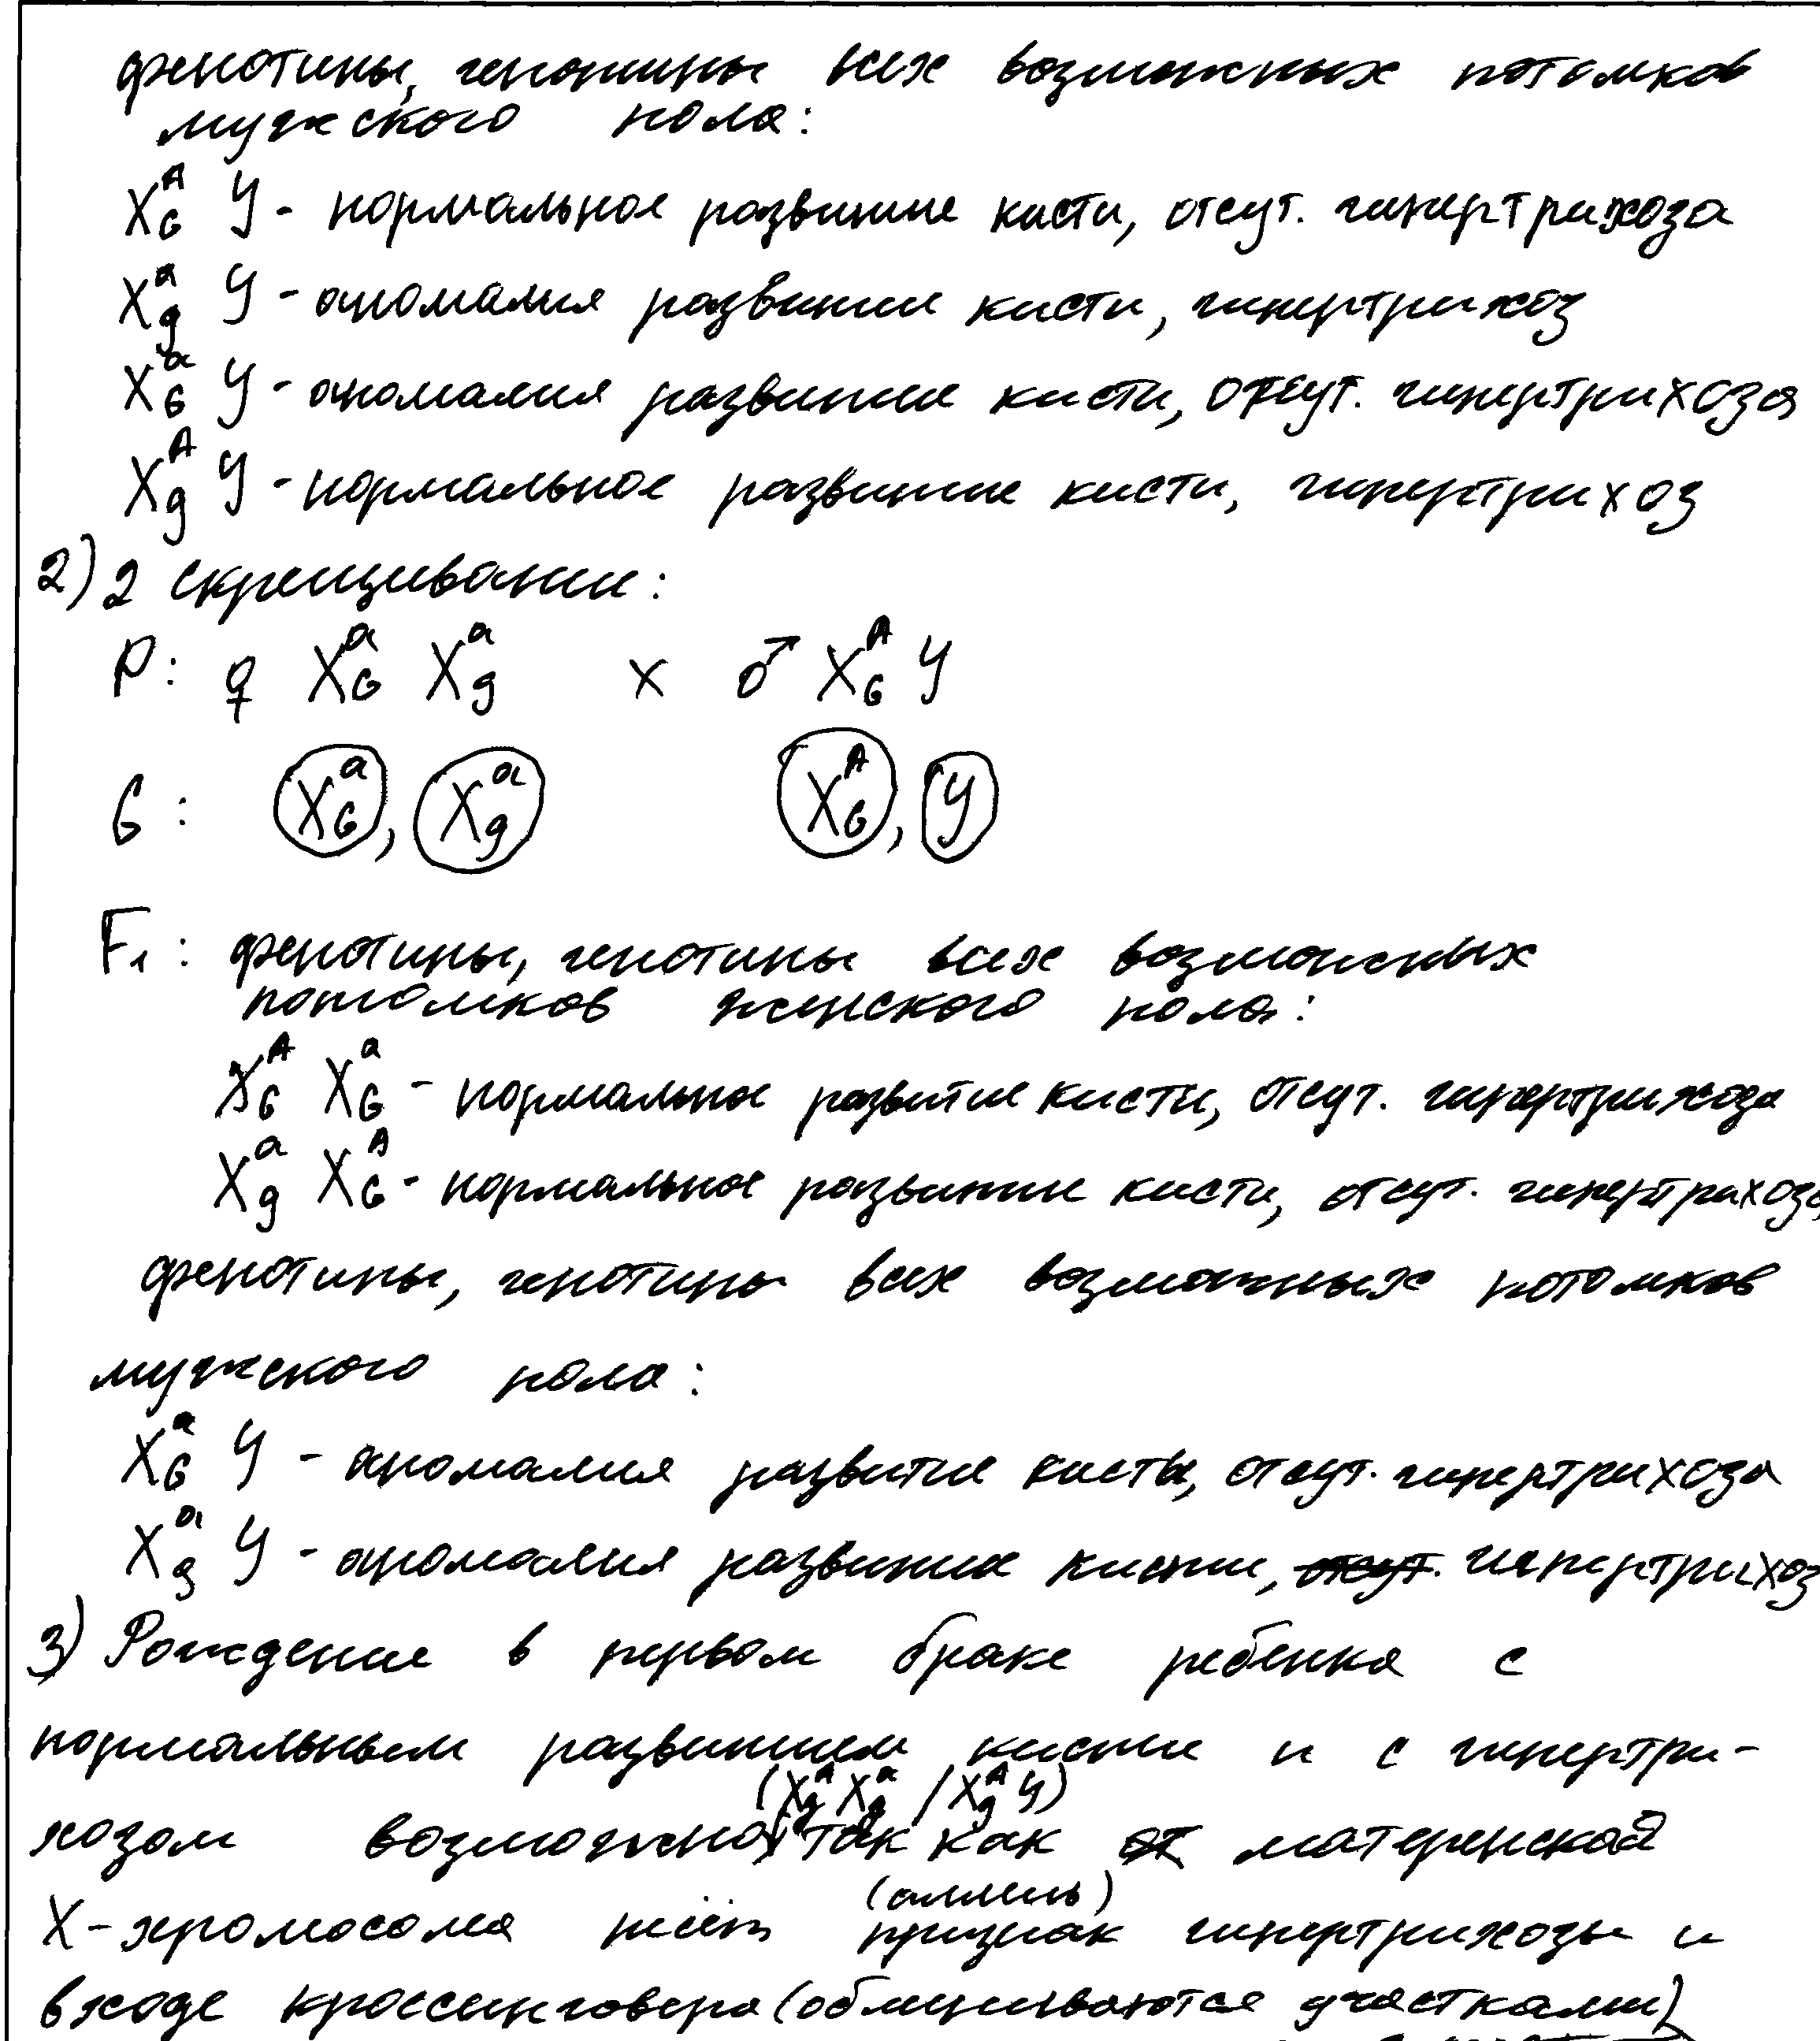 фенотипы, генотипы всех возможных потомков
мужского пола:
X^A_G У - нормальное развитие кисти, отсут. гипертрихоза
X^a_g У - аномалия развития кисти, гипертрихоз
X^a_G У - аномалия развития кисти, отсут. гипертрихоза
X^A_g У - нормальное развитие кисти, гипертрихоз
2) 2 скрещивание:
P: ♀ X^a_G X^a_g x ♂ X^A_G У
G: X^a_G, X^a_g X^A_G, У
F₁: фенотипы, генотипы всех возможных
потомков женского пола:
X^A_G X^a_G - нормальное развитие кисти, отсут. гипертрихоза
X^a_g X^A_G - нормальное развитие кисти, отсут. гипертрихоза
фенотипы, генотипы всех возможных потомков
мужского пола:
X^a_G У - аномалия развития кисти, отсут. гипертрихоза
X^a_g У - аномалия развития кисти, отсут. гипертрихоз
3) Рождение в первом браке ребенка с
нормальным развитием кисти и с гипертри-
(X^A_g X^a_g / X^A_g У)
хозом возможно, так как от материнской
(аллель)
X-хромосома несёт признак гипертрихозы и
в ходе кроссинговера (обмениваются участками)